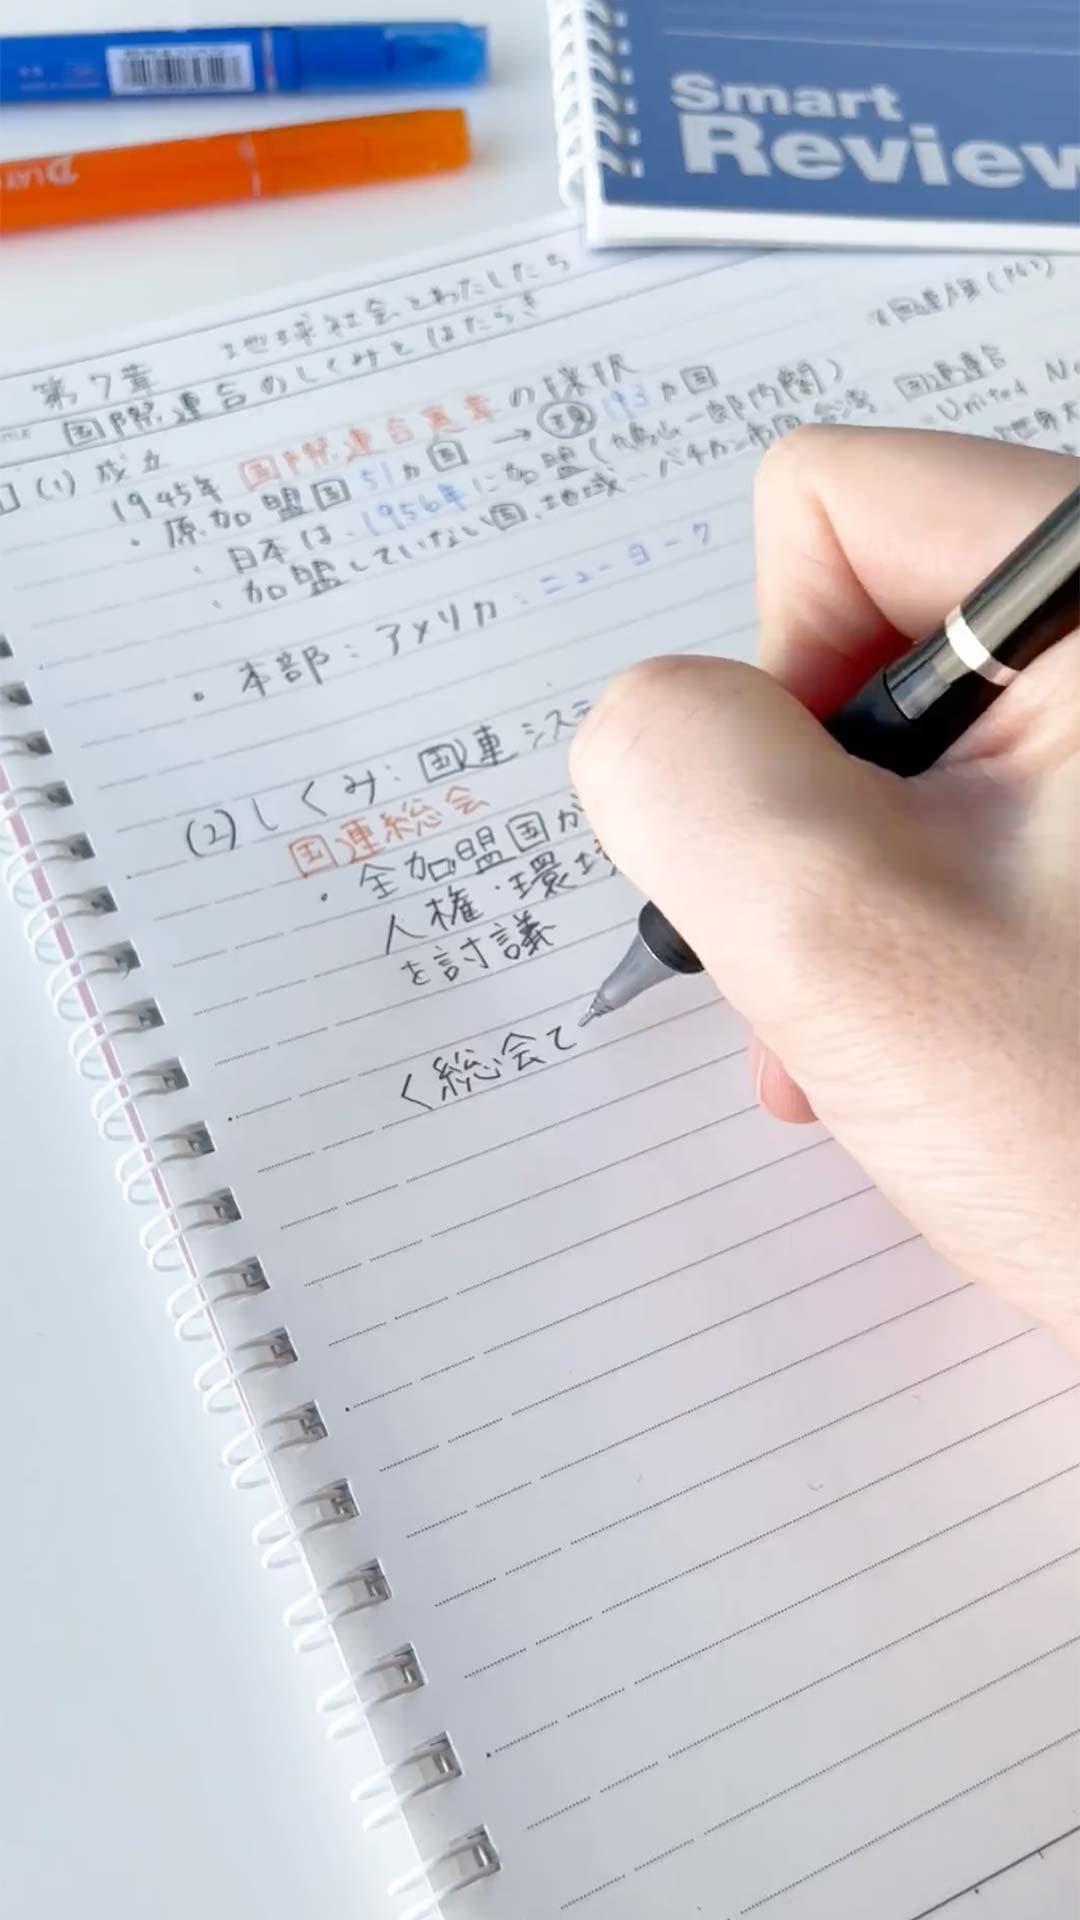 Smart
Review
第7章 地球社会とわたしたち
国際連合のしくみとはたらき
(1) 成立
1945年 国際連合憲章の採択
・原加盟国 51ヵ国 → 現 193ヵ国
・日本は、1956年に加盟(鳩山一郎内閣)
・加盟していない国、地域… バチカン市国
国際連合
United
・本部:アメリカ:ニューヨーク
(2) しくみ:国連システ
国連総会
・全加盟国が
人権・環境
を討議
く総会で